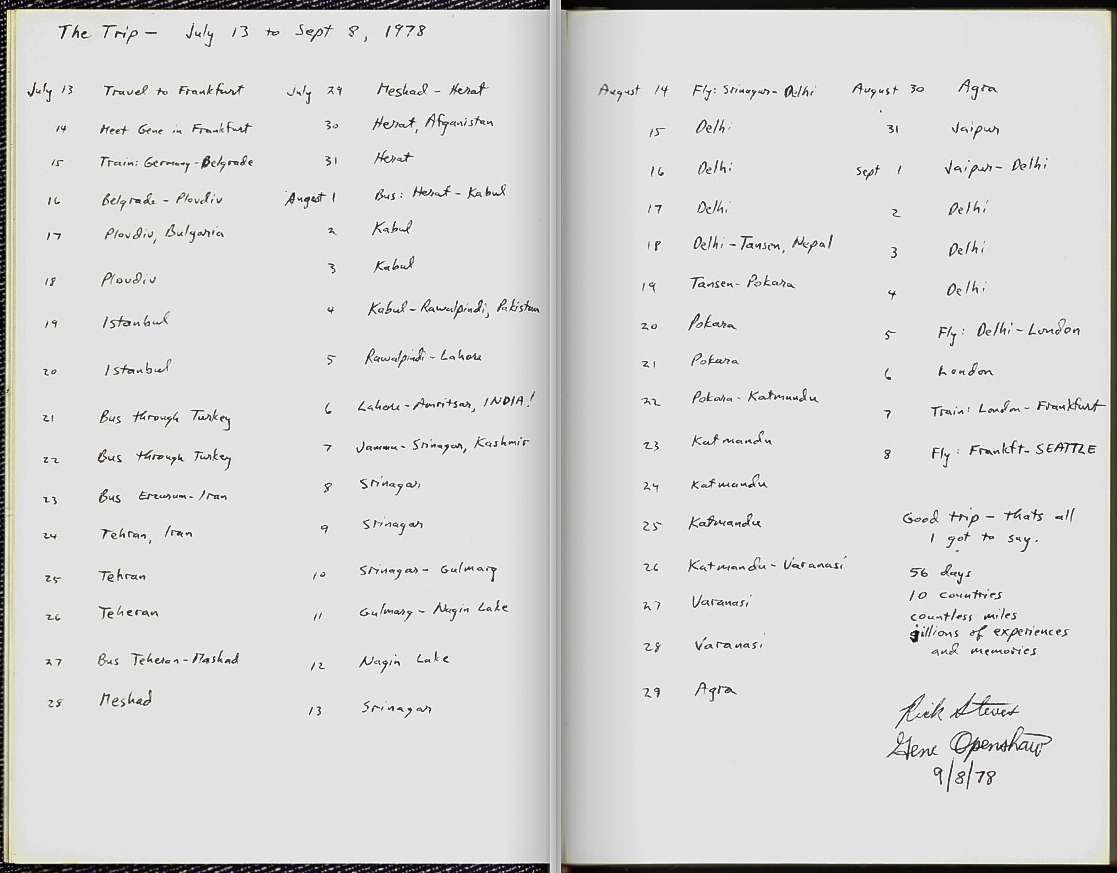 The Trip — July 13 to Sept 8, 1978
July 13 Travel to Frankfurt
14 Meet Gene in Frankfurt
15 Train: Germany - Belgrade
16 Belgrade - Plovdiv
17 Plovdiv, Bulgaria
18 Plovdiv
19 Istanbul
20 Istanbul
21 Bus through Turkey
22 Bus through Turkey
23 Bus Erzurum - Iran
24 Tehran, Iran
25 Tehran
26 Teheran
27 Bus Teheran - Mashad
28 Meshad
July 29 Meshad - Herat
30 Herat, Afganistan
31 Herat
August 1 Bus: Herat - Kabul
2 Kabul
3 Kabul
4 Kabul - Rawalpindi, Pakistan
5 Rawalpindi - Lahore
6 Lahore - Amritsar, INDIA!
7 Jammu - Srinagar, Kashmir
8 Srinagar
9 Srinagar
10 Srinagar - Gulmarg
11 Gulmarg - Nagin Lake
12 Nagin Lake
13 Srinagar
August 14 Fly: Srinagar - Delhi
15 Delhi
16 Delhi
17 Delhi
18 Delhi - Tansen, Nepal
19 Tansen - Pokara
20 Pokara
21 Pokara
22 Pokara - Katmandu
23 Katmandu
24 Katmandu
25 Katmandu
26 Katmandu - Varanasi
27 Varanasi
28 Varanasi
29 Agra
August 30 Agra
31 Jaipur
Sept 1 Jaipur - Delhi
2 Delhi
3 Delhi
4 Delhi
5 Fly: Delhi - London
6 London
7 Train: London - Frankfurt
8 Fly: Frankft - SEATTLE
Good trip — thats all
I got to say.
56 days
10 countries
countless miles
jillions of experiences
and memories
Rick Steves
Gene Openshaw
9/8/78